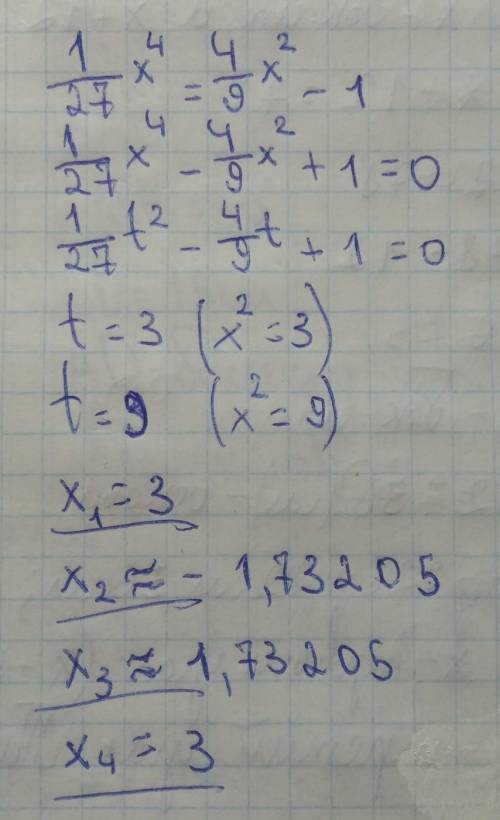 1/27 x⁴ = 4/9 x² - 1
1/27 x⁴ - 4/9 x² + 1 = 0
1/27 t² - 4/9 t + 1 = 0
t = 3 (x² = 3)
t = 9 (x² = 9)
x₁ = 3
x₂ ≈ - 1,73205
x₃ ≈ 1,73205
x₄ = 3